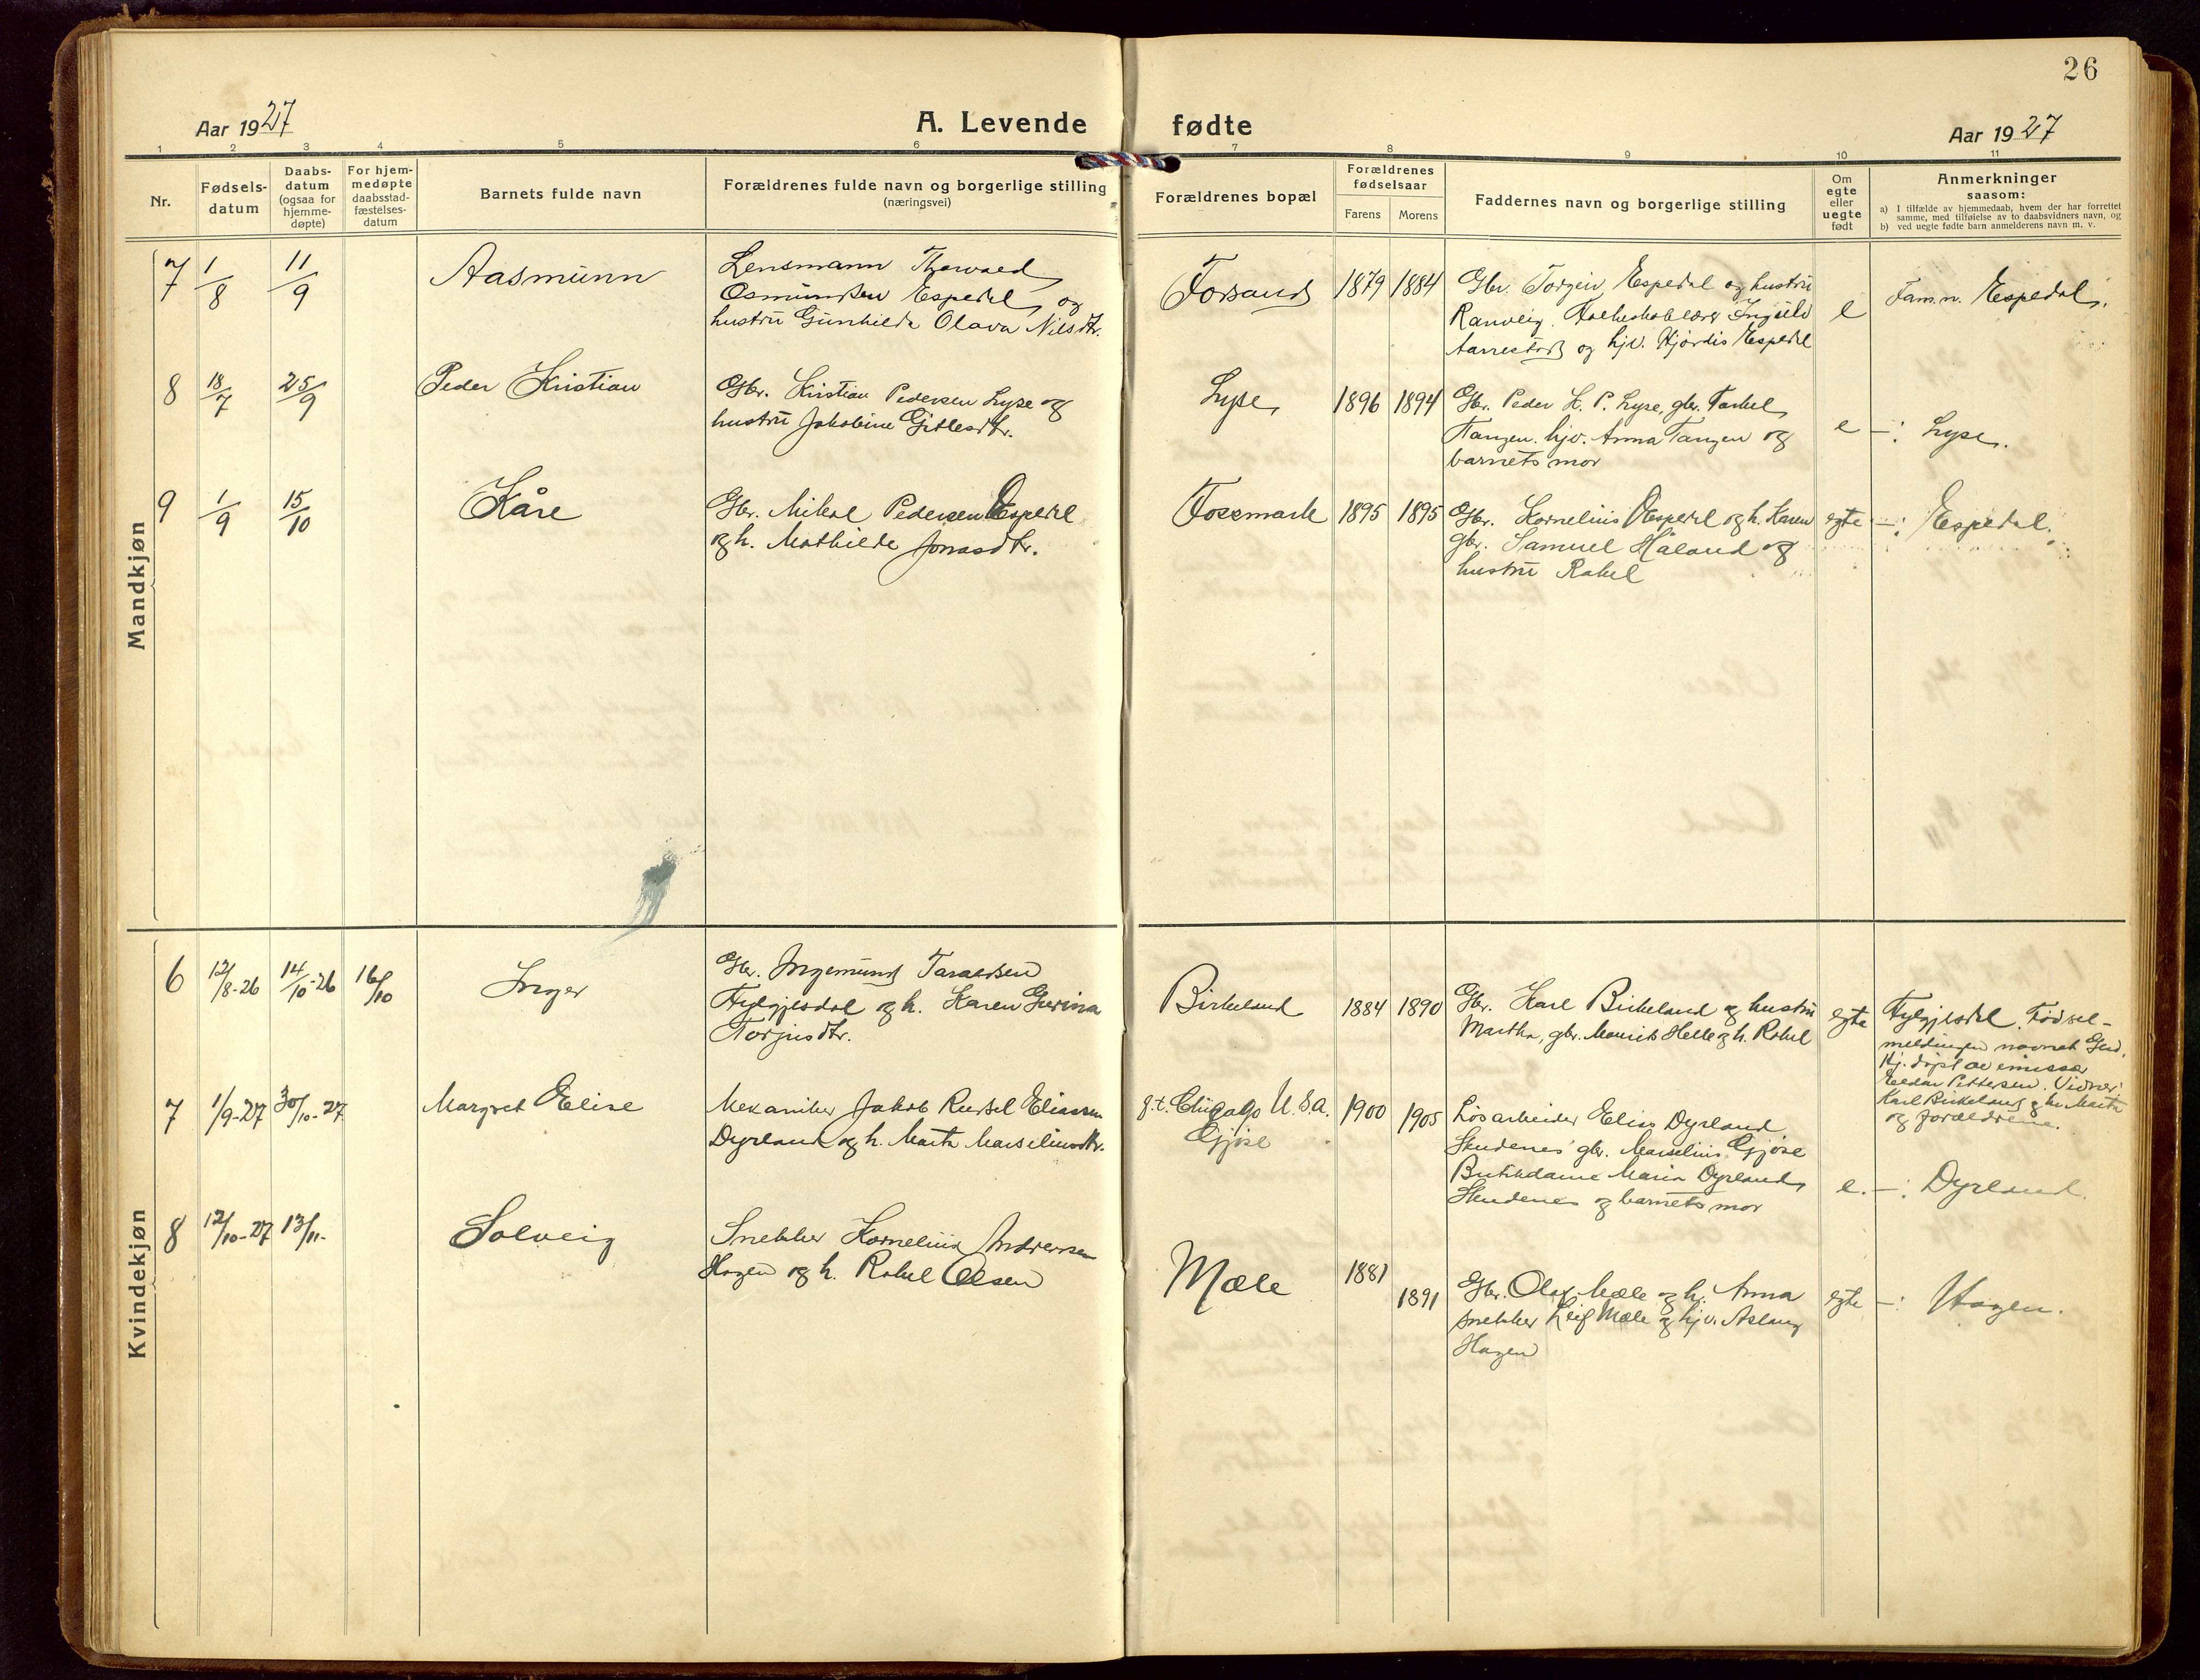 26
Aar 1927
A. Levende fødte
Aar 1927
1 2 3 4 5 6 7 8 9 10 11
Nr.
Fødsels-
datum
Daabs-
datum
(ogsaa for
hjemme-
døpte)
For hjem-
medøpte
daabsstad-
fæstelses-
datum
Barnets fulde navn
Forældrenes fulde navn og borgerlige stilling
(næringsvei)
Forældrenes bopæl
Forældrenes
fødselsaar
Farens Morens
Faddernes navn og borgerlige stilling
Om
egte
eller
uegte
født
Anmerkninger
saasom:
a) I tilfælde av hjemmedaab, hvem der har forrettet
samme, med tilføielse av to daabsvidners navn, og
b) ved uegte fødte barn anmelderens navn m. v.
Mandkjøn
7 1/8 11/9 Aasmunn
Lensmann Thorvald
Osmundsen Espedal og
hustru Gunhilde Olava Nilsdtr.
Forsand 1879 1884
Gbr. Torgeir Espedal og hustru
Ranveig. Ingulv
Aarrestad og hjv. Hjørdis Espedal
e Fam.n. Espedal.
8 18/7 25/9 Peder Kristian
Gbr. Kristian Pedersen Lyse og
hustru Jakobine Gitlesdtr.
Lyse 1896 1894
Gbr. Peder K. P. Lyse, gbr. Torkel
Tangen. hjv. Anna Tangen og
barnets mor
e —: Lyse.
9 1/9 15/10 Kåre
Gbr. Mikal Pedersen Espedal
og h. Mathilde Jonasdtr.
Fossmark 1895 1895
Gbr. Kornelius Espedal og h. Karen
gbr. Samuel Håland og
hustru Rakel
egte —: Espedal.
Kvindekjøn
6 12/8-26 14/10-26 16/10 Inger
Gbr. Ingemund Taraldsen
Fylgjesdal og h. Karen Gurina
Torjusdtr.
Birkeland 1884 1890
Gbr. Karl Birkeland og hustru
Martha, gbr. Maurits Helle og h. Rakel
egte Fylgjesdal. Fødsel-
meldingen navnet
Hj. døpt av emissær
Pettersen. Vidner:
Karl Birkeland og h. Marta
og forældrene.
7 1/9-27 30/10-27 Margret Elise
Mekaniker Jakob Eliassen
Dyrland og h. Marta Marseliusdtr.
g.t. Chicago U.S.a.
Gjøse
1900 1905
Løsarbeider Elias Dyrland
Skudenes gbr. Marselius Gjøse
Butikdame Maria Dyrland
Skudenes og barnets mor
e. —: Dyrland.
8 12/10-27 13/11- Solveig
Snekker Kornelius Andreassen
Hagen og h. Rakel Olsen
Mæle 1881 1891
Gbr. Olaf Mæle og h. Anna
snekker Leif Mæle og hjv. Aslaug
Hagen
egte —: Hagen.